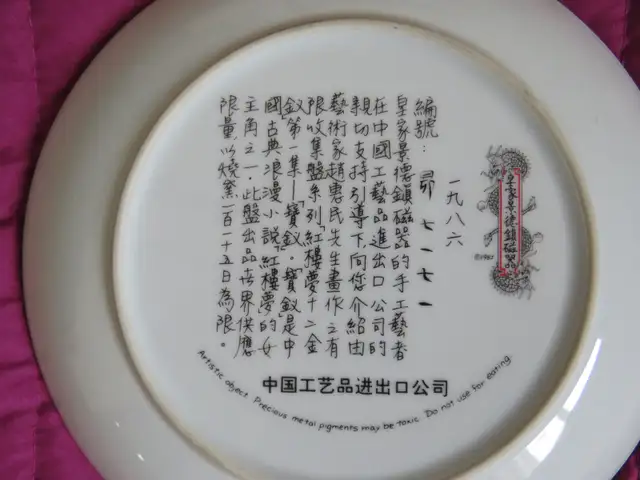 一九八六
編號： 昴 七一七一
皇家景德鎮磁器的手工藝者
在中國工藝品進出口公司的
親切支持引導下向您介紹由
藝術家趙惠民先生畫作之有
限收集盤系列「紅樓夢十二金
釵」第一集—「寶釵」。「寶釵」是中
國古典浪漫小說「紅樓夢」的女
主角之一。此盤出品世界供應
限量以燒窯一百一十五日為限。
中国工艺品进出口公司
Artistic object. Precious metal pigments may be toxic. Do not use for eating.